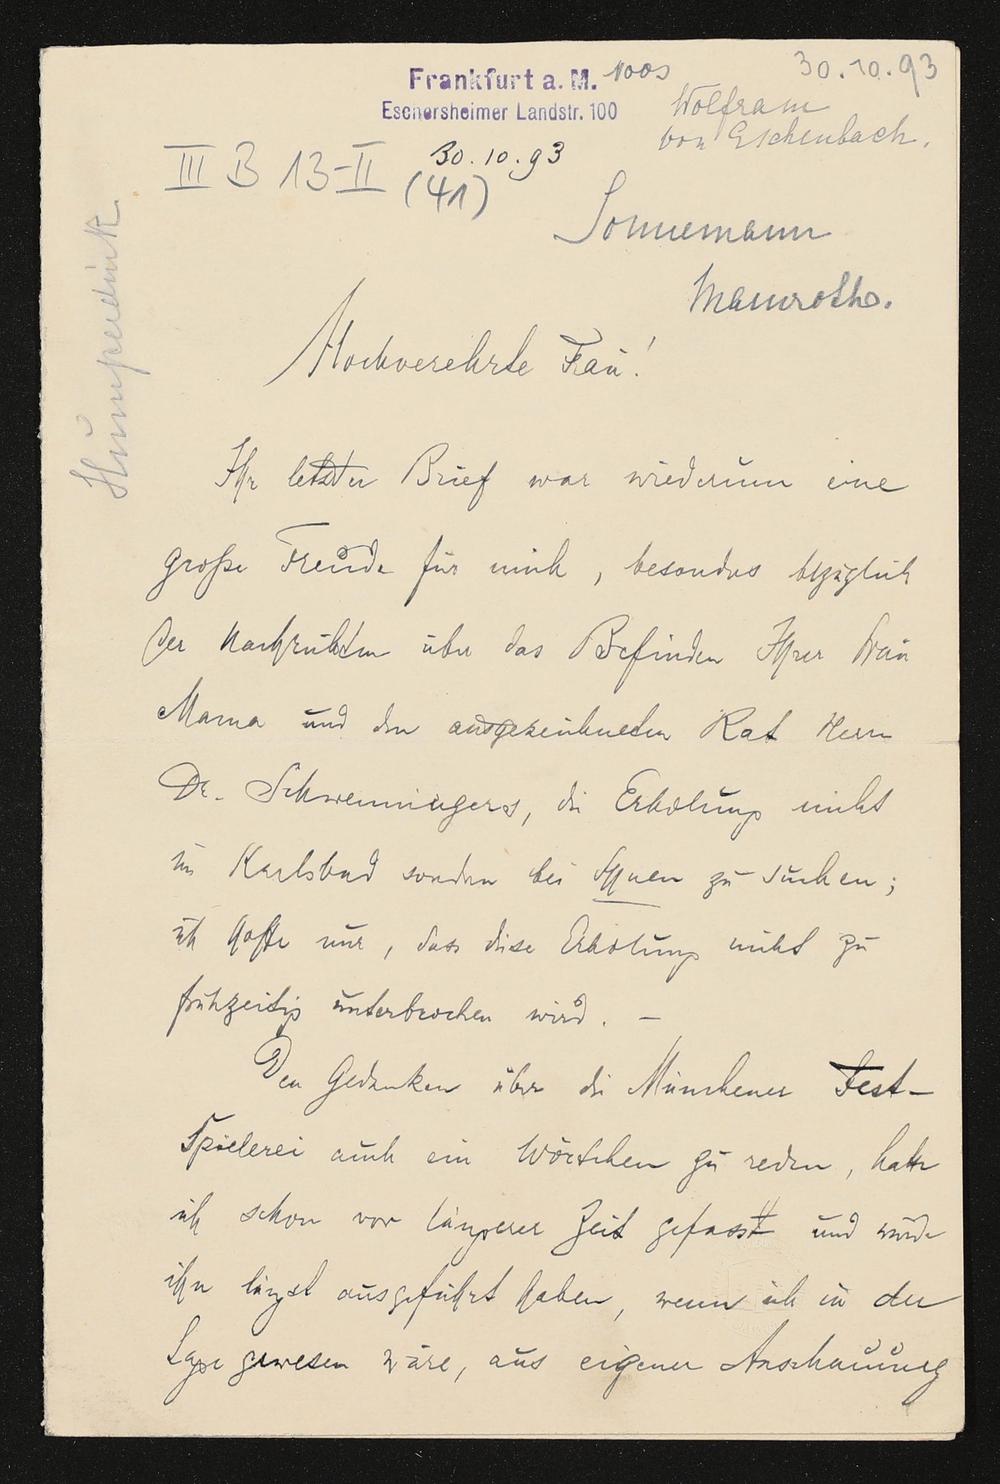 Frankfurt a. M.
Eschersheimer Landstr. 100
30.10.93
Wolfram
von Eschenbach.
III B 13-II
30.10.93
(41)
Humperdink.
Sonnemann
Mamroths.
Hochverehrte Frau!
Ihr letzter Brief war wiederum eine
große Freude für mich, besonders bezüglich
der Nachrichten über das Befinden Ihrer Frau
Mama und den ausgezeichneten Rat Herrn
Dr. Schweningers, die Erholung nicht
in Karlsbad sondern bei Ihnen zu suchen;
ich hoffe nur, dass diese Erholung nicht zu
frühzeitig unterbrochen wird. —
Den Gedanken über die Münchener Fest-
Spielerei auch ein Wörtchen zu reden, hatte
ich schon vor längerer Zeit gefasst und würde
ihn längst ausgeführt haben, wenn ich in der
Lage gewesen wäre, aus eigener Anschauung